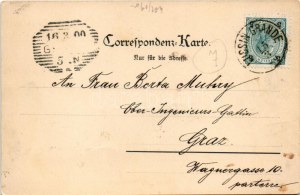 16.3.00
5.N
LUSSINGRANDE
Correspondenz-Karte.
Nur für die Adresse.
An Frau Berta Muhry
Ober-Ingenieurs-Gattin
Graz.
Wagnergasse 10.
parterre